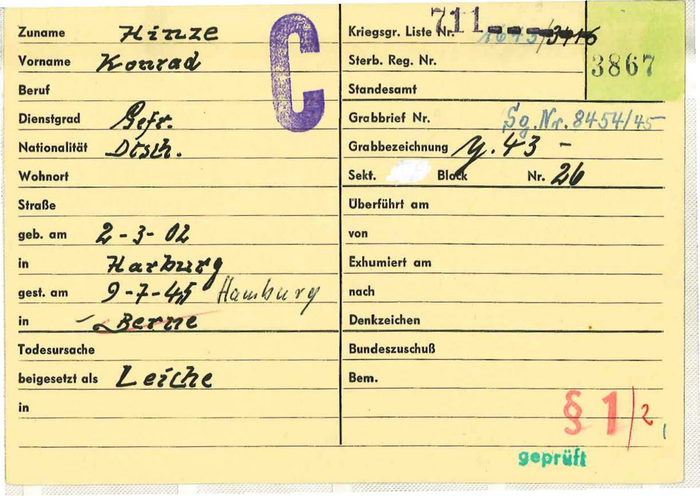 Zuname Hinze
Vorname Konrad
Beruf
Dienstgrad Gefr.
Nationalität Dtsch.
Wohnort
Straße
geb. am 2-3-02
in Harburg
gest. am 9-7-45 Hamburg
in Berne
Todesursache
beigesetzt als Leiche
in
C
711
Kriegsgr. Liste Nr. /3416
3867
Sterb. Reg. Nr.
Standesamt
Grabbrief Nr. Sg. Nr. 8454/45
Grabbezeichnung y. 43 -
Sekt. Block Nr. 26
Überführt am
von
Exhumiert am
nach
Denkzeichen
Bundeszuschuß
Bem.
§ 1/2
geprüft